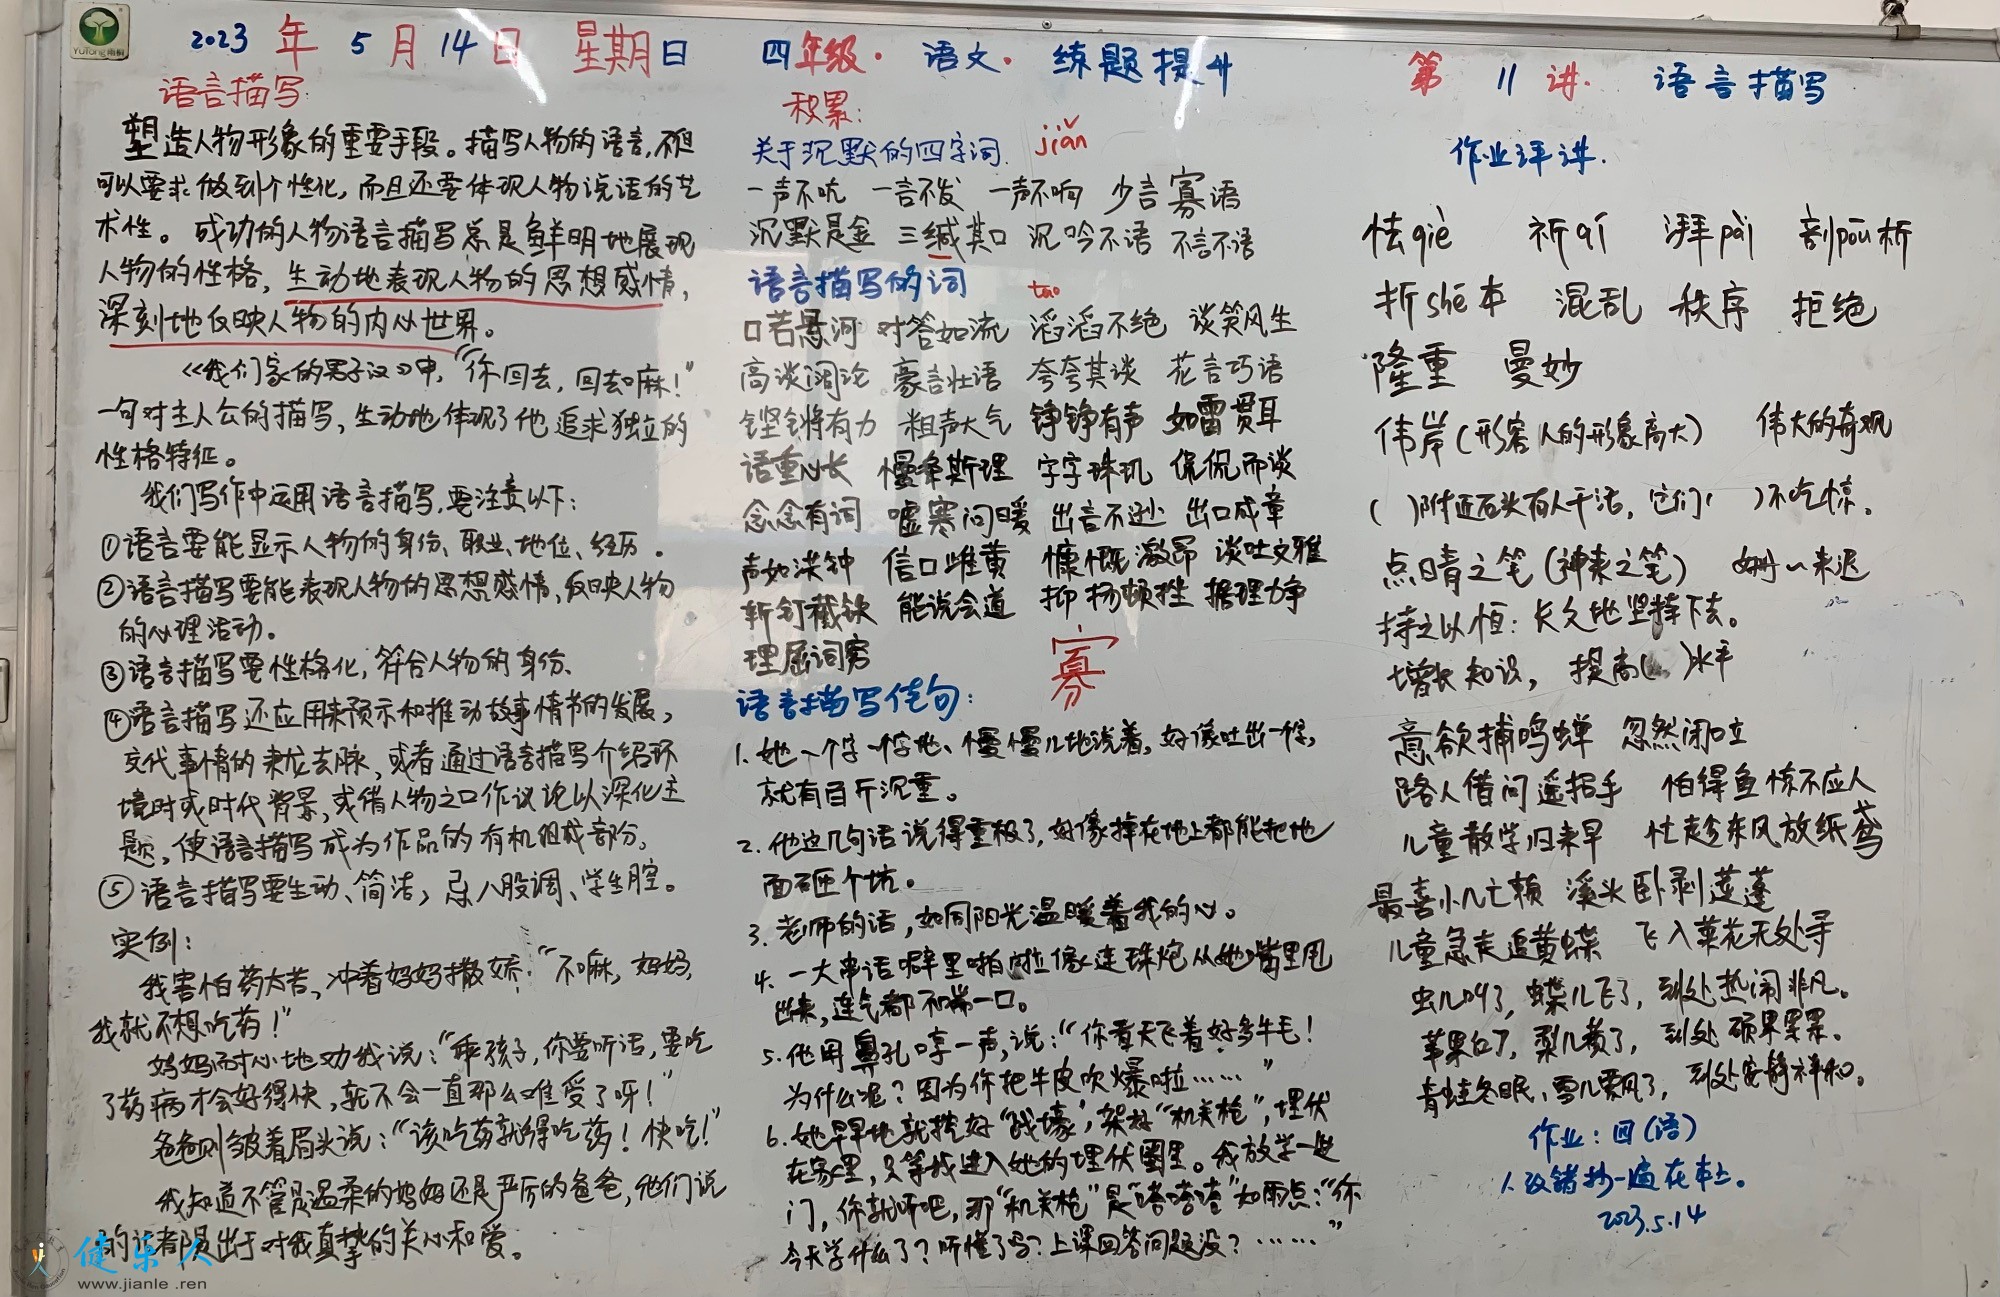 2023年5月14日 星期日 四年级·语文·练题提升 第11讲·语言描写
语言描写:
塑造人物形象的重要手段。描写人物的语言,不但
可以要求做到个性化,而且还要体现人物说话的艺
术性。成功的人物语言描写总是鲜明地展现
人物的性格,生动地表现人物的思想感情,
深刻地反映人物的内心世界。
《我们家的男子汉》中,“你回去,回去嘛!”
一句对主人公的描写,生动地体现了他追求独立的
性格特征。
我们写作中运用语言描写,要注意以下:
①语言要能显示人物的身份、职业、地位、经历。
②语言描写要能表现人物的思想感情,反映人物
的心理活动。
③语言描写要性格化,符合人物的身份、
④语言描写还应用来预示和推动故事情节的发展,
交代事情的来龙去脉,或者通过语言描写介绍环
境时或时代背景,或借人物之口作议论以深化主
题,使语言描写成为作品的有机组成部分。
⑤语言描写要生动、简洁,忌八股调、学生腔。
实例:
我害怕药太苦,冲着妈妈撒娇:“不嘛,妈妈,
我就不想吃药!”
妈妈耐心地劝我说:“乖孩子,你要听话,要吃
了药病才会好得快,就不会一直那么难受了呀!”
爸爸则皱着眉头说:“该吃药就得吃药!快吃!”
我知道不管是温柔的妈妈还是严厉的爸爸,他们说
的话都是出于对我真挚的关心和爱。
积累:
关于沉默的四字词. jiǎn
一声不吭 一言不发 一声不响 少言寡语
沉默是金 三缄其口 沉吟不语 不言不语
语言描写的词 tao
口若悬河 对答如流 滔滔不绝 谈笑风生
高谈阔论 豪言壮语 夸夸其谈 花言巧语
铿锵有力 粗声大气 铮铮有声 如雷贯耳
话重心长 慢条斯理 字字珠玑 侃侃而谈
念念有词 嘘寒问暖 出言不逊 出口成章
声如洪钟 信口雌黄 慷慨激昂 谈吐文雅
斩钉截铁 能说会道 抑扬顿挫 据理力争
理屈词穷 寡
语言描写佳句:
1. 她一个字一个字地、慢慢儿地说着,好像吐出一样,
就有百斤沉重。
2. 他这几句话说得重极了,好像掉在地上都能把地
面砸个坑。
3. 老师的话,如同阳光温暖着我的心。
4. 一大串话噼里啪啦像连珠炮从她嘴里甩
出来,连气都不喘一口。
5. 他用鼻孔哼一声,说:“你看天飞着好多牛毛!
为什么准?因为你把牛皮吹爆啦……”
6. 她早早地就挖好“战壕”,架好“机关枪”,埋伏
在家里,只等我进入她的埋伏圈里。我放学一进
门,你就听吧,那“机关枪”是“嗒嗒嗒”如雨点:“你
今天学什么了?听懂了吗?上课回答问题没?……”
作业评讲.
怯qiè 祈qí 湃pài 剖pōu析
折shé本 混乱 秩序 拒绝
隆重 曼妙
伟岸(形容人的形象高大) 伟大的奇观
( )附近石头有人干活,它们( )不吃惊。
点睛之笔(神来之笔) 姗~来迟
持之以恒:长久地坚持下去。
增长知识,提高( )水平
意欲捕鸣蝉 忽然闭口立
路人借问遥招手 怕得鱼惊不应人
儿童散学归来早 忙趁东风放纸鸢
最喜小儿亡赖 溪头卧剥莲蓬
儿童急走追黄蝶 飞入菜花无处寻
虫儿叫了,蝶儿飞了,到处热闹非凡。
苹果红了,梨儿黄了,到处硕果累累。
青蛙冬眠,雪儿飘了,到处安静祥和。
作业:四(语)
1. 改错抄一遍在本上。
2023.5.14
健乐人
www.jianle.ren